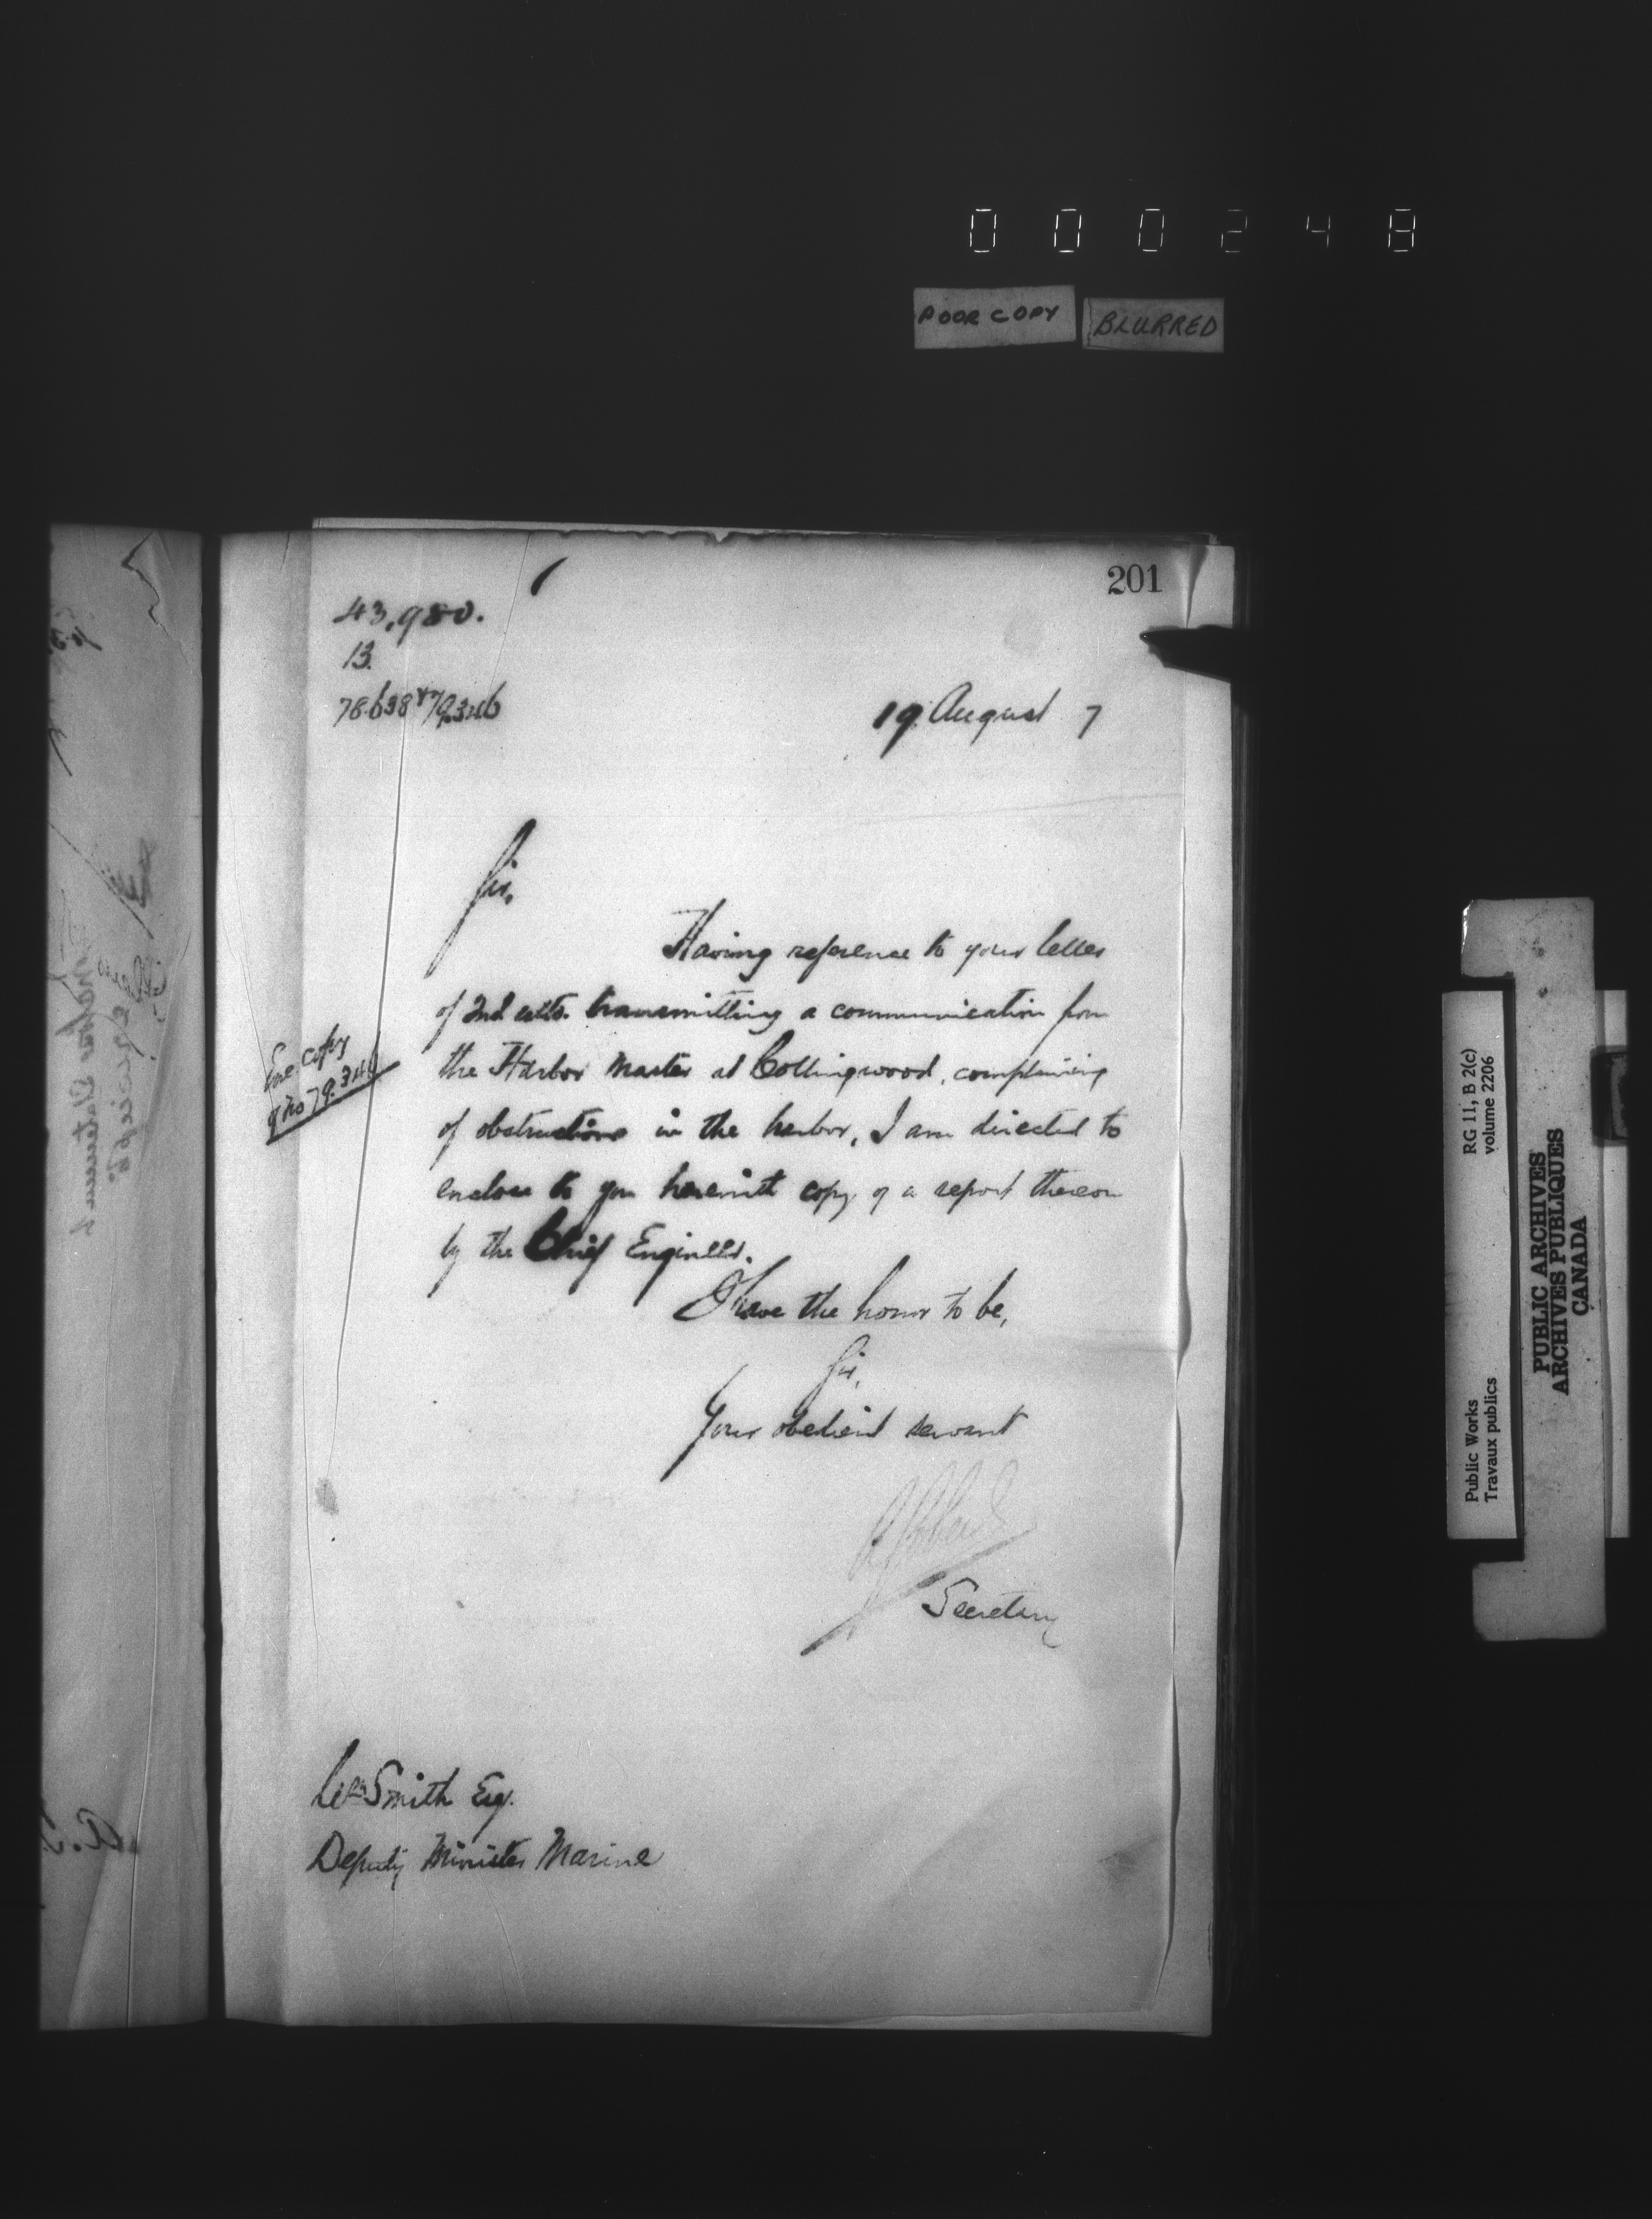 000248
POOR COPY BLURRED
201
43,980.
13.
78.638 & 79.346
19 August 7
Sir,
Having reference to your letter
of 2nd ulto. transmitting a communication from
the Harbor Master at Collingwood, complaining
of obstructions in the harbor, I am directed to
enclose to you herewith copy of a report thereon
by the Chief Engineer.
Enc. copy
of No 79.346
I have the honor to be,
Sir,
Your obedient servant
Secretary
Wm Smith Esq.
Deputy Minister Marine
Public Works
Travaux publics
RG 11, B 2(c)
volume 2206
PUBLIC ARCHIVES
ARCHIVES PUBLIQUES
CANADA